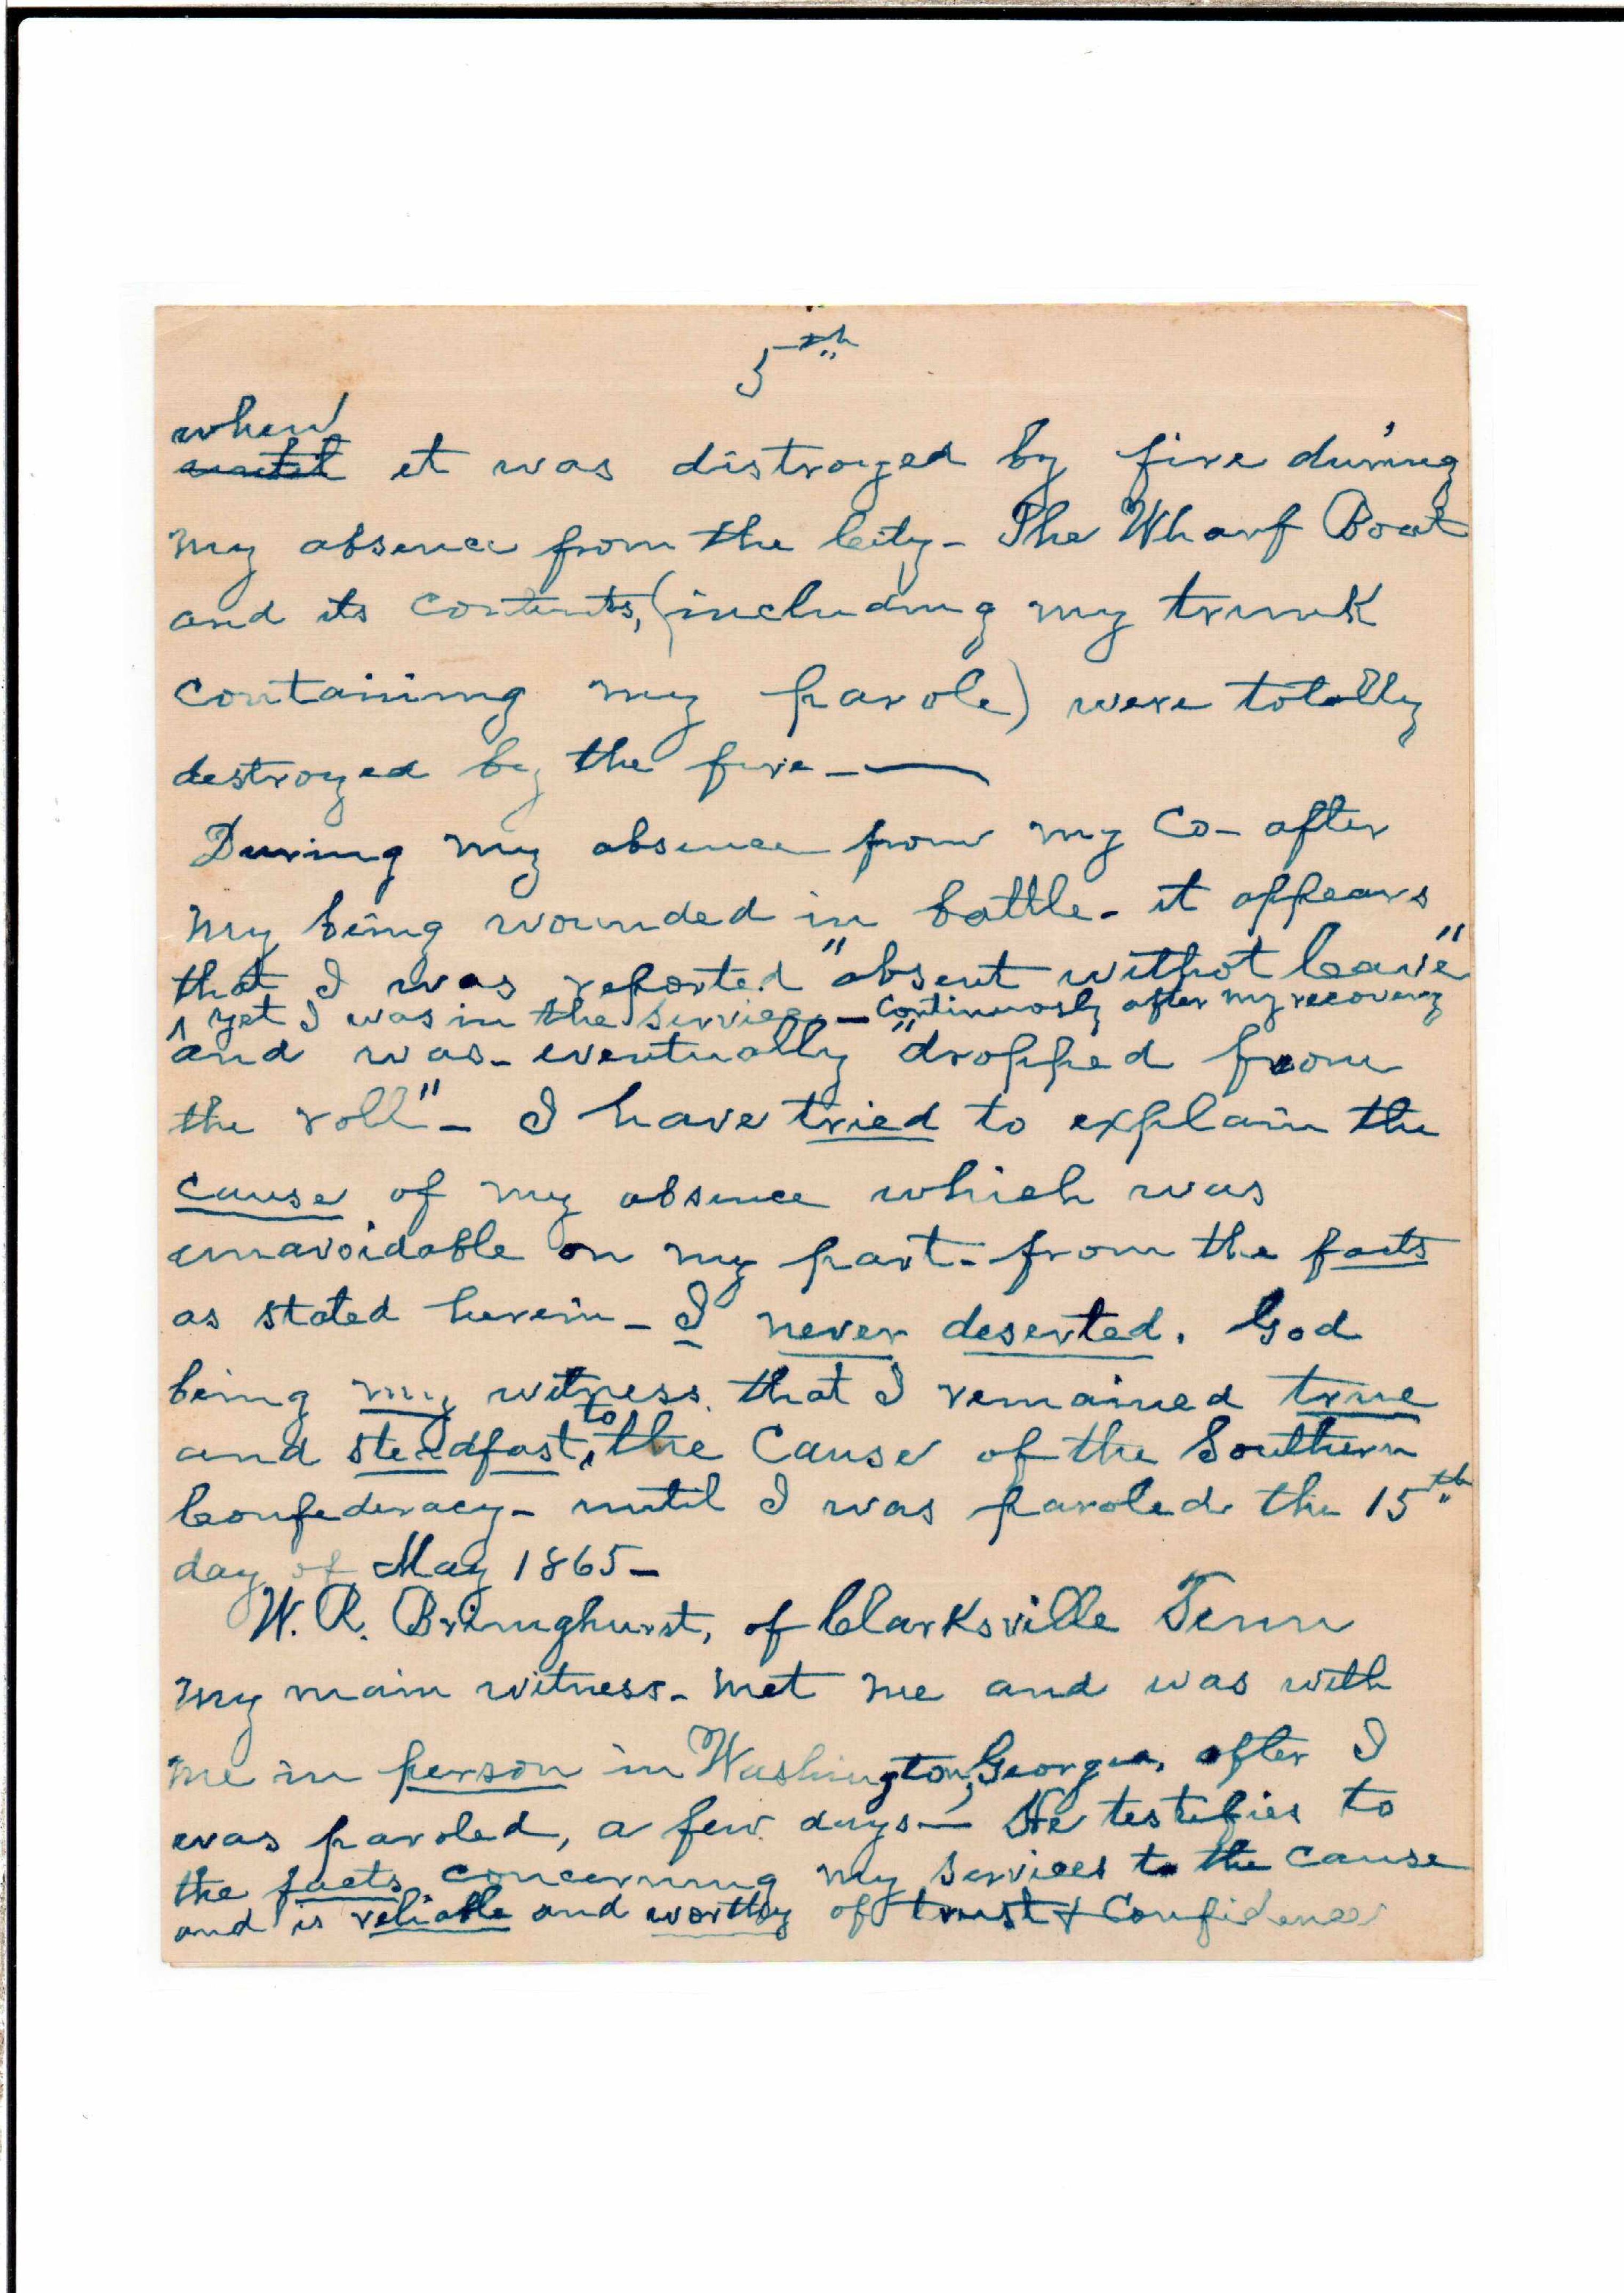 5th
when
until et was distroyed by fire during
my absence from the City - The Wharf Boat
and its contents, (including my trunk
containing my parole) were totally
destroyed by the fire - —
During my absence from my Co - after
my being wounded in battle - it appears
that I was reported "absent without leave"
yet I was in the service - continuously after my recovery
and was - eventually "dropped from
the roll" - I have tried to explain the
cause of my absence which was
unavoidable on my part - from the facts
as stated herein - I never deserted. God
being my witness that I remained true
to
and steadfast, the Cause of the Southern
Confederacy - until I was paroled the 15th
day of May 1865 -
W. R. Bringhurst, of Clarksville Tenn
my main witness - met me and was with
me in person in Washington, Georgia, after I
was paroled, a few days - He testifies to
the facts concerning my services to the cause
and is reliable and worthy of trust & Confidence